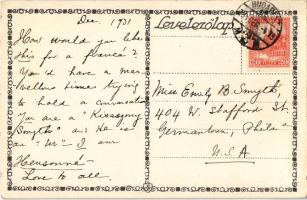 Dec. 1931
Levelezőlap
How would you like
this for a fiancé?
You'd have a mar-
vellous time trying
to hold a conversation
You are a "Kisasszony
Smyth" and he is
an "Úr" I am
Love to all.
Miss Emily B. Smyth,
404 W. Stafford St.
Germantown, Phila
U.S.A